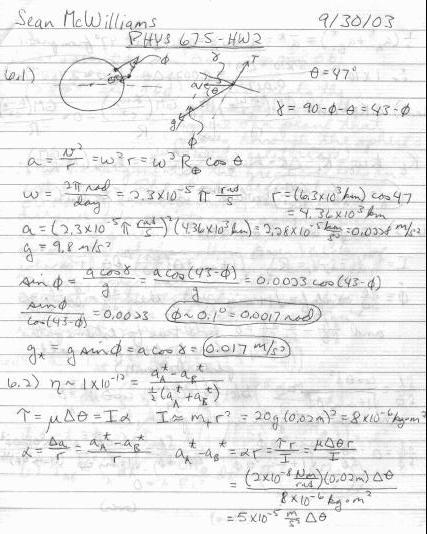 Sean McWilliams 9/30/03
PHYS 675-HW2
6.1) θ=47°
γ = 90-ϕ-θ = 43-ϕ
a = v²/r = ω²r = ω² R⊕ cos θ
ω = 2π rad/day = 2.3×10⁻⁵ π rad/s r = (6.3×10³ km) cos 47
= 4.36×10³ km
a = (2.3×10⁻⁵ π rad/s)² (4.36×10³ km) = 2.28×10⁻⁵ km/s² = 0.0228 m/s²
g = 9.8 m/s²
sin ϕ = a cos γ/g = a cos (43-ϕ)/g = 0.0023 cos (43-ϕ)
sin ϕ/cos (43-ϕ) = 0.0023 ϕ ~ 0.1° = 0.0017 rad
g* = g sin ϕ = a cos γ = 0.017 m/s²
6.2) η ~ 1×10⁻¹² = (a_A* - a_B*)/(½(a_A* + a_B*))
τ = μΔθ = Iα I ≈ m_T r² = 20g (0.02m)² = 8×10⁻⁶ kg·m²
α = Δa/r = (a_A* - a_B*)/r a_A* - a_B* = αr = τr/I = μΔθr/I
= (2×10⁻⁸ Nm/rad)(0.02m) Δθ / 8×10⁻⁶ kg·m²
= 5×10⁻⁵ m/s² Δθ